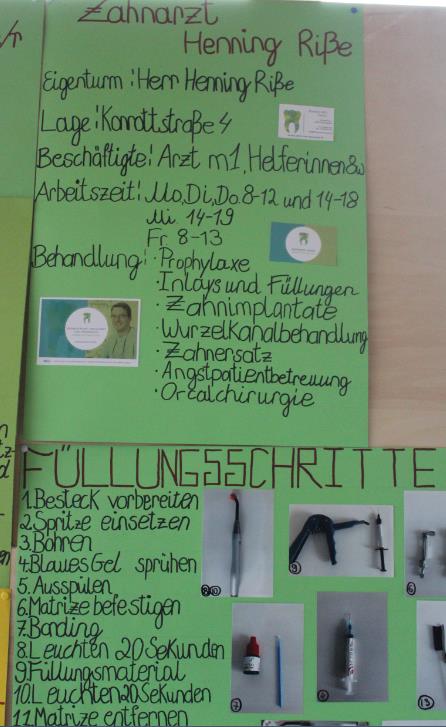 Zahnarzt
Henning Riße
Eigentum: Herr Henning Riße
Lage: Konrottstraße 4
Beschäftigte: Arzt m1, Helferinnen 8w
Arbeitszeit: Mo, Di, Do. 8-12 und 14-18
Mi 14-19
Fr 8-13
Behandlung: · Prophylaxe
· Inlays und Füllungen
· Zahnimplantate
· Wurzelkanalbehandlung
· Zahnersatz
· Angstpatientbetreuung
· Orcalchirurgie
FÜLLUNGSSCHRITTE
1. Besteck vorbereiten
2. Spritze einsetzen
3. Bohren
4. Blaues Gel sprühen
5. Ausspülen
6. Matrize befestigen
7. Bonding
8. Leuchten 20 Sekunden
9. Füllungsmaterial
10. Leuchten 20 Sekunden
11. Matrize entfernen
9
6
7
13